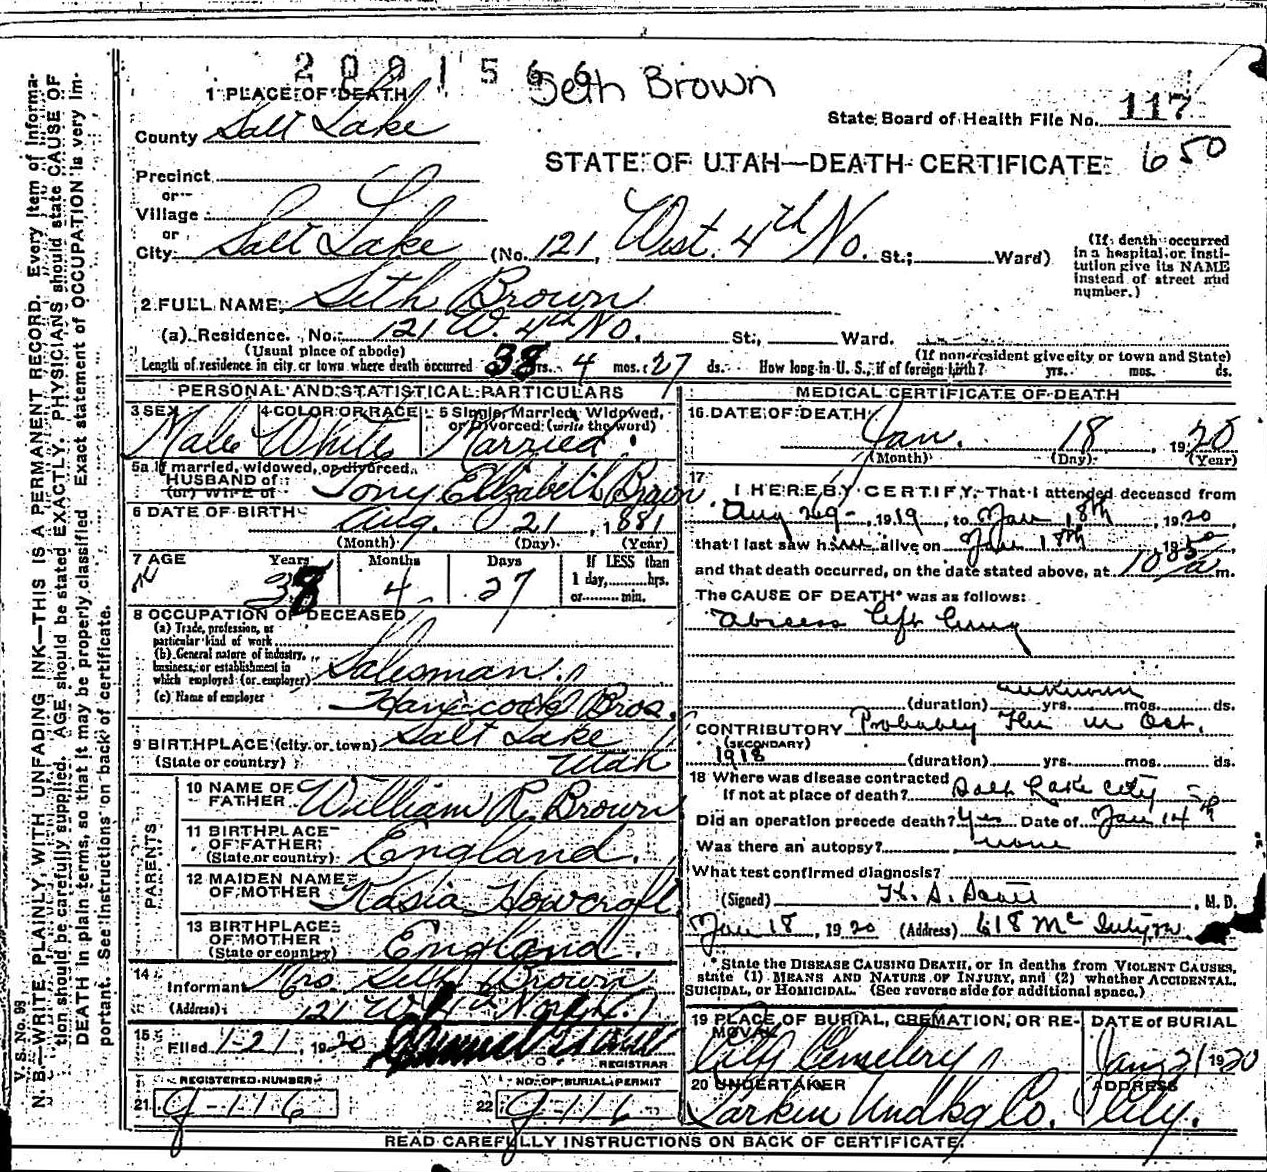 2001566
Seth Brown
1 PLACE OF DEATH
County Salt Lake
State Board of Health File No. 117
STATE OF UTAH—DEATH CERTIFICATE 650
Precinct
or
Village
or
City Salt Lake (No. 121, West 4th No. St.; Ward)
(If death occurred in a hospital or institution give its NAME instead of street and number.)
2 FULL NAME Seth Brown
(a) Residence. No. 121 W. 4th No. St., Ward.
(Usual place of abode) (If non-resident give city or town and State)
Length of residence in city or town where death occurred 38 yrs. 4 mos. 27 ds. How long in U. S., if of foreign birth? yrs. mos. ds.
PERSONAL AND STATISTICAL PARTICULARS
3 SEX Male
4 COLOR OR RACE White
5 Single, Married, Widowed, or Divorced (write the word) Married
5a If married, widowed, or divorced
HUSBAND of
(or) WIFE of Elizabeth Brown
6 DATE OF BIRTH Aug. 21, 1881
(Month) (Day) (Year)
7 AGE Years 38 Months 4 Days 27
If LESS than 1 day, hrs. or min.
8 OCCUPATION OF DECEASED
(a) Trade, profession, or particular kind of work
(b) General nature of industry, business, or establishment in which employed (or employer) Salesman
(c) Name of employer Bros.
9 BIRTHPLACE (city or town) Salt Lake
(State or country) Utah
PARENTS
10 NAME OF FATHER William R. Brown
11 BIRTHPLACE OF FATHER (State or country) England.
12 MAIDEN NAME OF MOTHER Kasia Howcroft
13 BIRTHPLACE OF MOTHER (State or country) England.
14 Informant Mrs. Seth Brown
(Address) 121 W 4th North.
15 Filed 1-21, 1920
REGISTRAR
REGISTERED NUMBER
21 J-116
NO. OF BURIAL PERMIT
22 J-116
MEDICAL CERTIFICATE OF DEATH
16 DATE OF DEATH Jan. 18, 1920
(Month) (Day) (Year)
17 I HEREBY CERTIFY, That I attended deceased from
Aug 29, 1919, to Jan 18th, 1920,
that I last saw him alive on Jan 18th, 1920
and that death occurred, on the date stated above, at 10 50 a m.
The CAUSE OF DEATH* was as follows:
Abscess Left Lung
unknown
(duration) yrs. mos. ds.
CONTRIBUTORY Probabley Flu in Oct.
(SECONDARY)
1918 (duration) yrs. mos. ds.
18 Where was disease contracted
If not at place of death? Salt Lake City
Did an operation precede death? Yes Date of Jan 14th
Was there an autopsy? none
What test confirmed diagnosis?
(Signed) , M. D.
Jan 18, 1920 (Address) 618 Mc Intyre
*State the DISEASE CAUSING DEATH, or in deaths from VIOLENT CAUSES, state (1) MEANS AND NATURE OF INJURY, and (2) whether ACCIDENTAL, SUICIDAL, or HOMICIDAL. (See reverse side for additional space.)
19 PLACE OF BURIAL, CREMATION, OR REMOVAL City Cemetery
DATE of BURIAL Jan 21 1920
20 UNDERTAKER Larkin Undkg Co.
ADDRESS City.
READ CAREFULLY INSTRUCTIONS ON BACK OF CERTIFICATE.
V. S. No. 99
N. B.—WRITE PLAINLY WITH UNFADING INK—THIS IS A PERMANENT RECORD. Every item of information should be carefully supplied. AGE should be stated EXACTLY. PHYSICIANS should state CAUSE OF DEATH in plain terms, so that it may be properly classified. Exact statement of OCCUPATION is very important. See instructions on back of certificate.